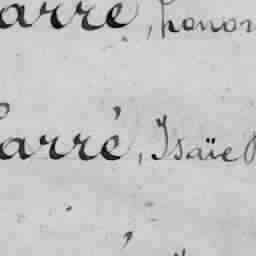 arré, honor
Carré, Isaïe